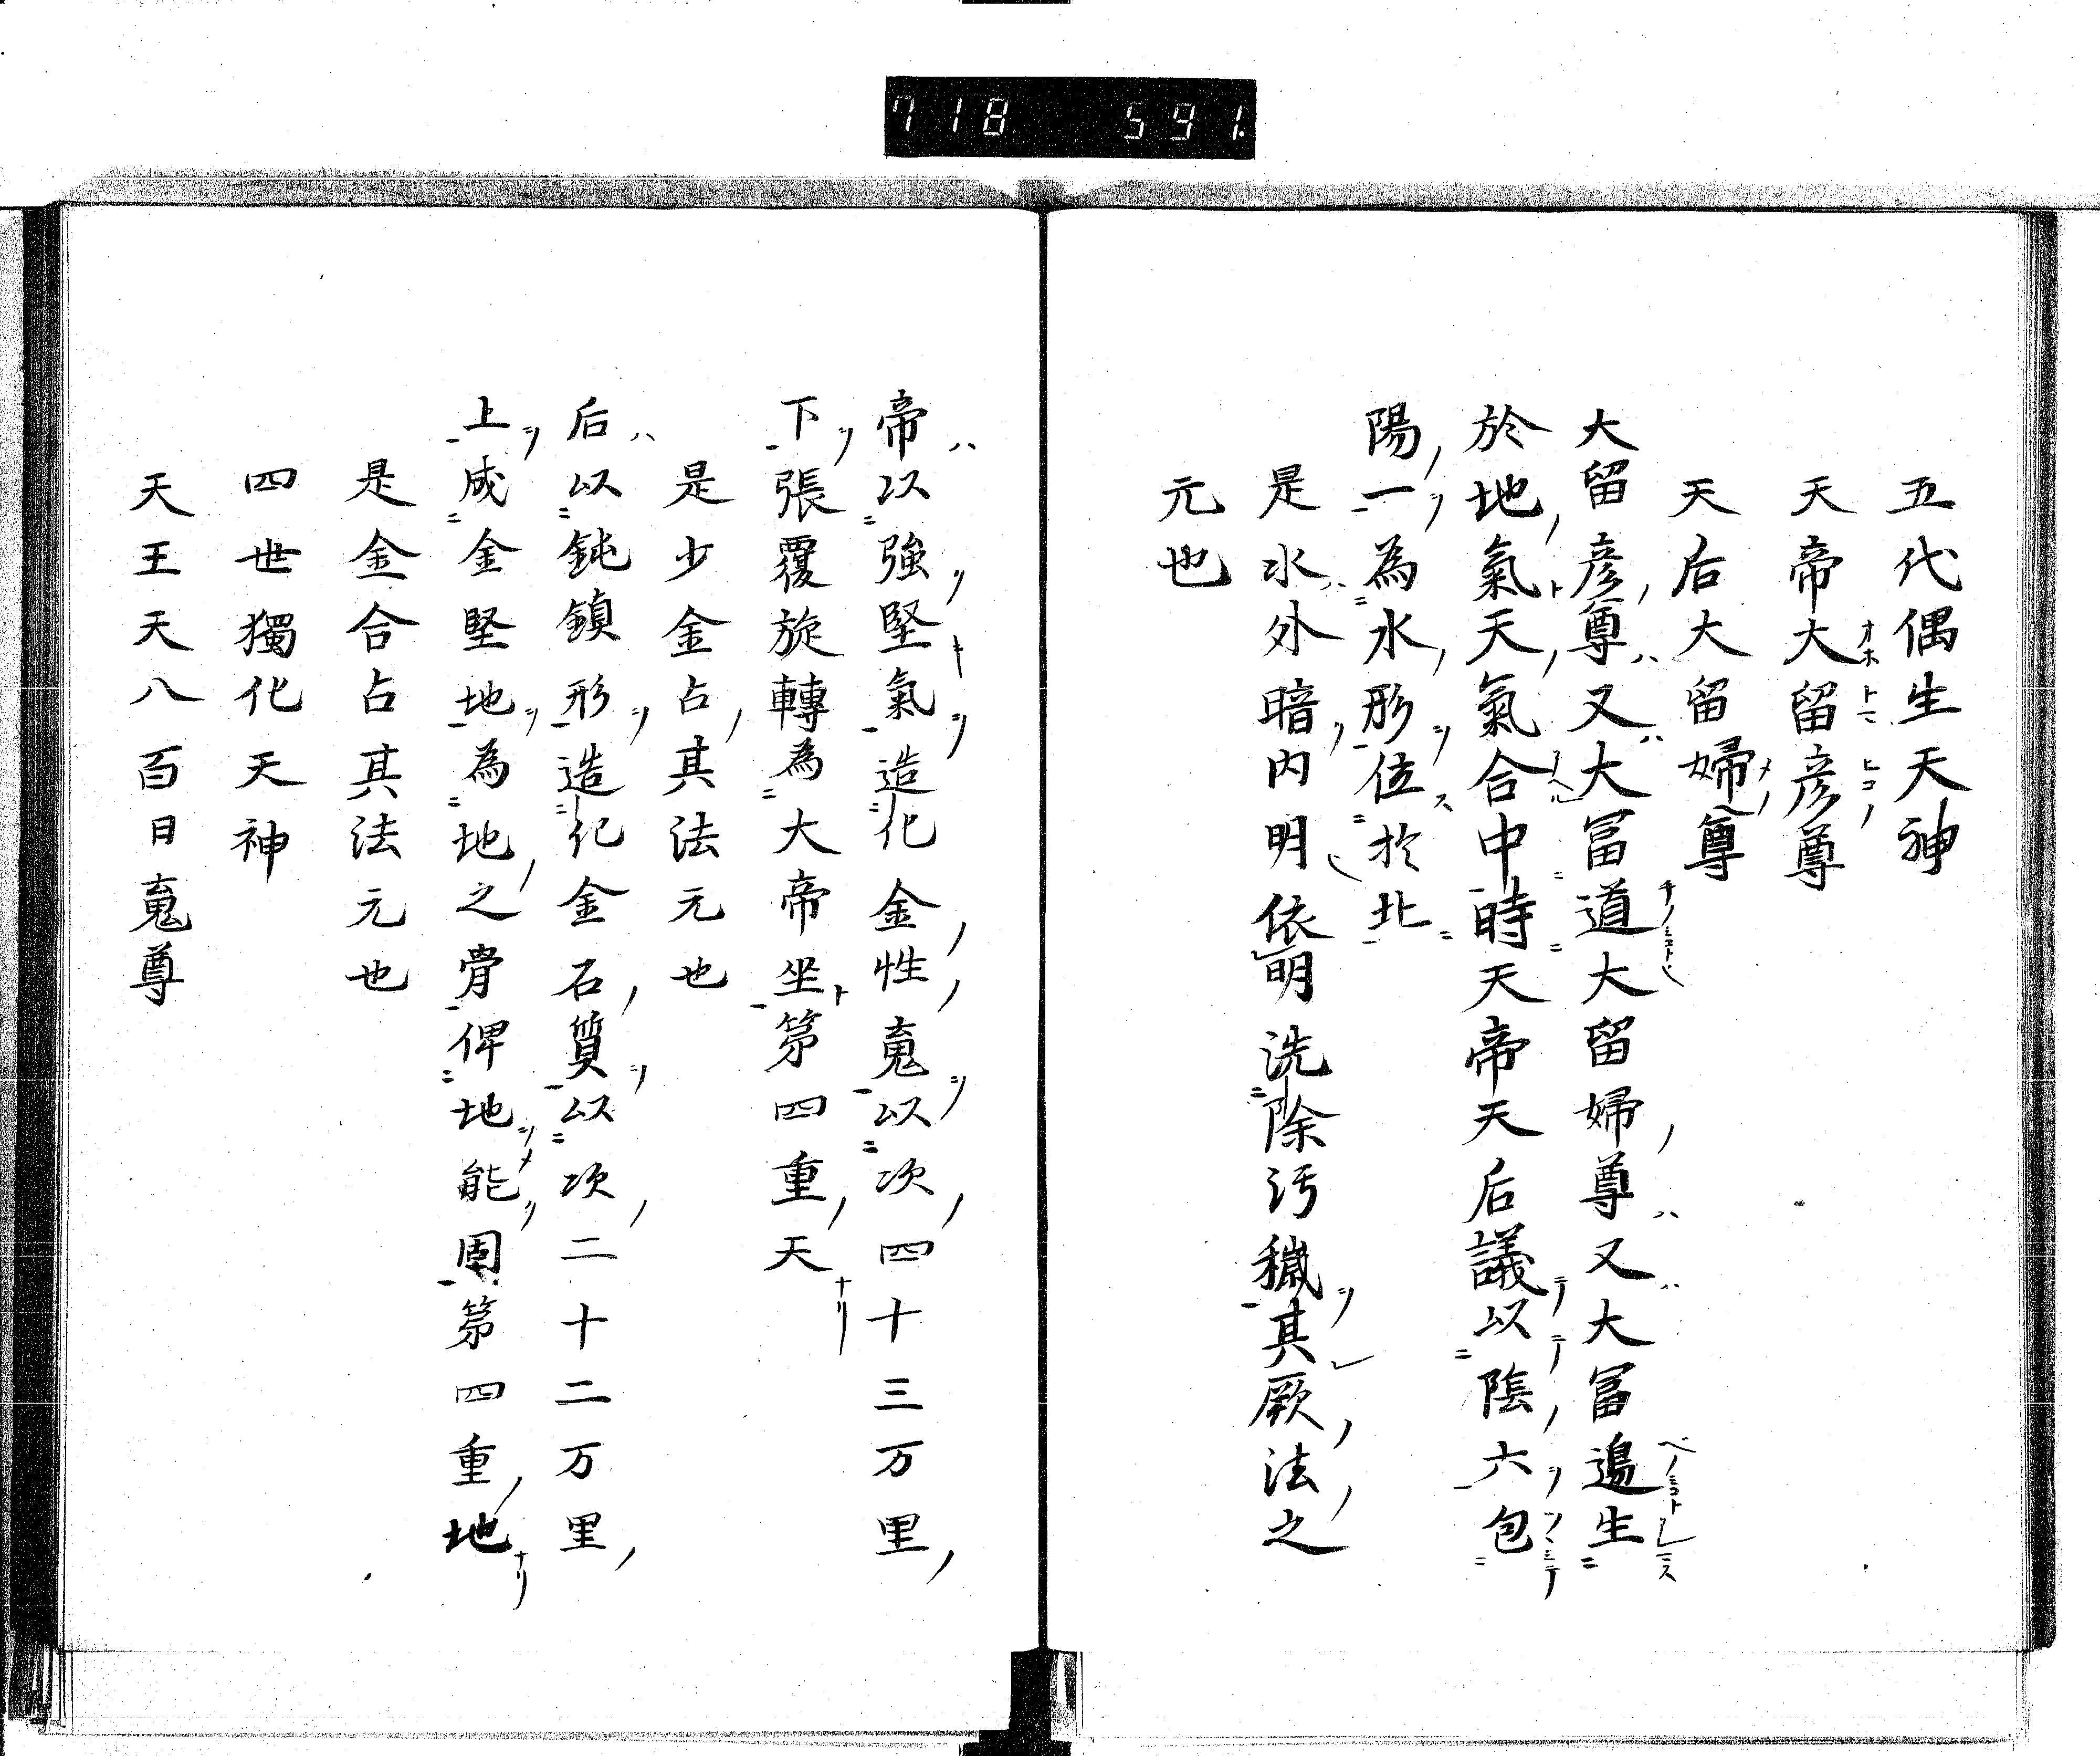 718 591
五代偶生天神
天帝大留彦尊
天后大留婦尊
大留彦尊又大冨道大留婦尊又大冨邉生
於地氣天氣合中時天帝天后議以陰六包
陽一為水形位於北
是水外暗内明依明洗除汚穢其厥法之
元也
帝以強堅氣造化金性䰟以次四十三万里
下張覆旋轉為大帝坐第四重天
是少金占其法元也
后以鈍鎖形造化金石質以次二十二万里
上成金堅地為地之骨俾地能固第四重地
是金合占其法元也
四世獨化天神
天王天八百日䰟尊